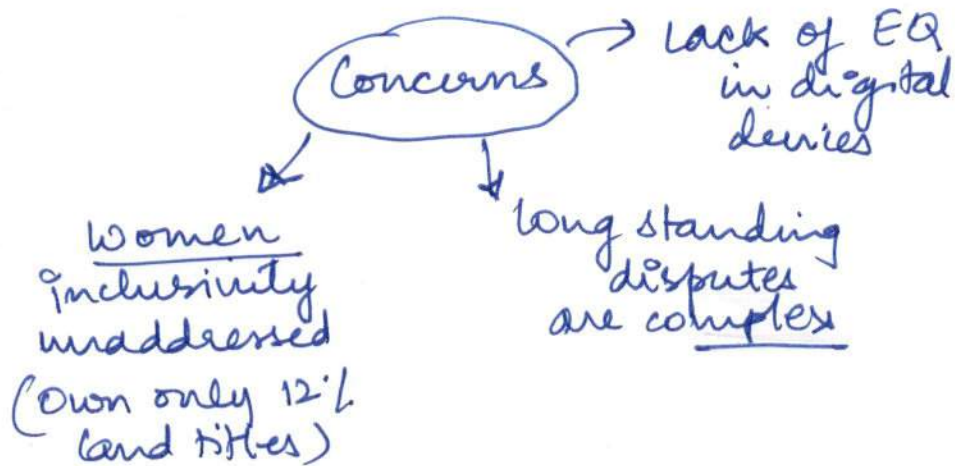 Concerns
Lack of EQ
in digital
devices
Women
inclusivity
unaddressed
(Own only 12%
land titles)
long standing
disputes
are complex